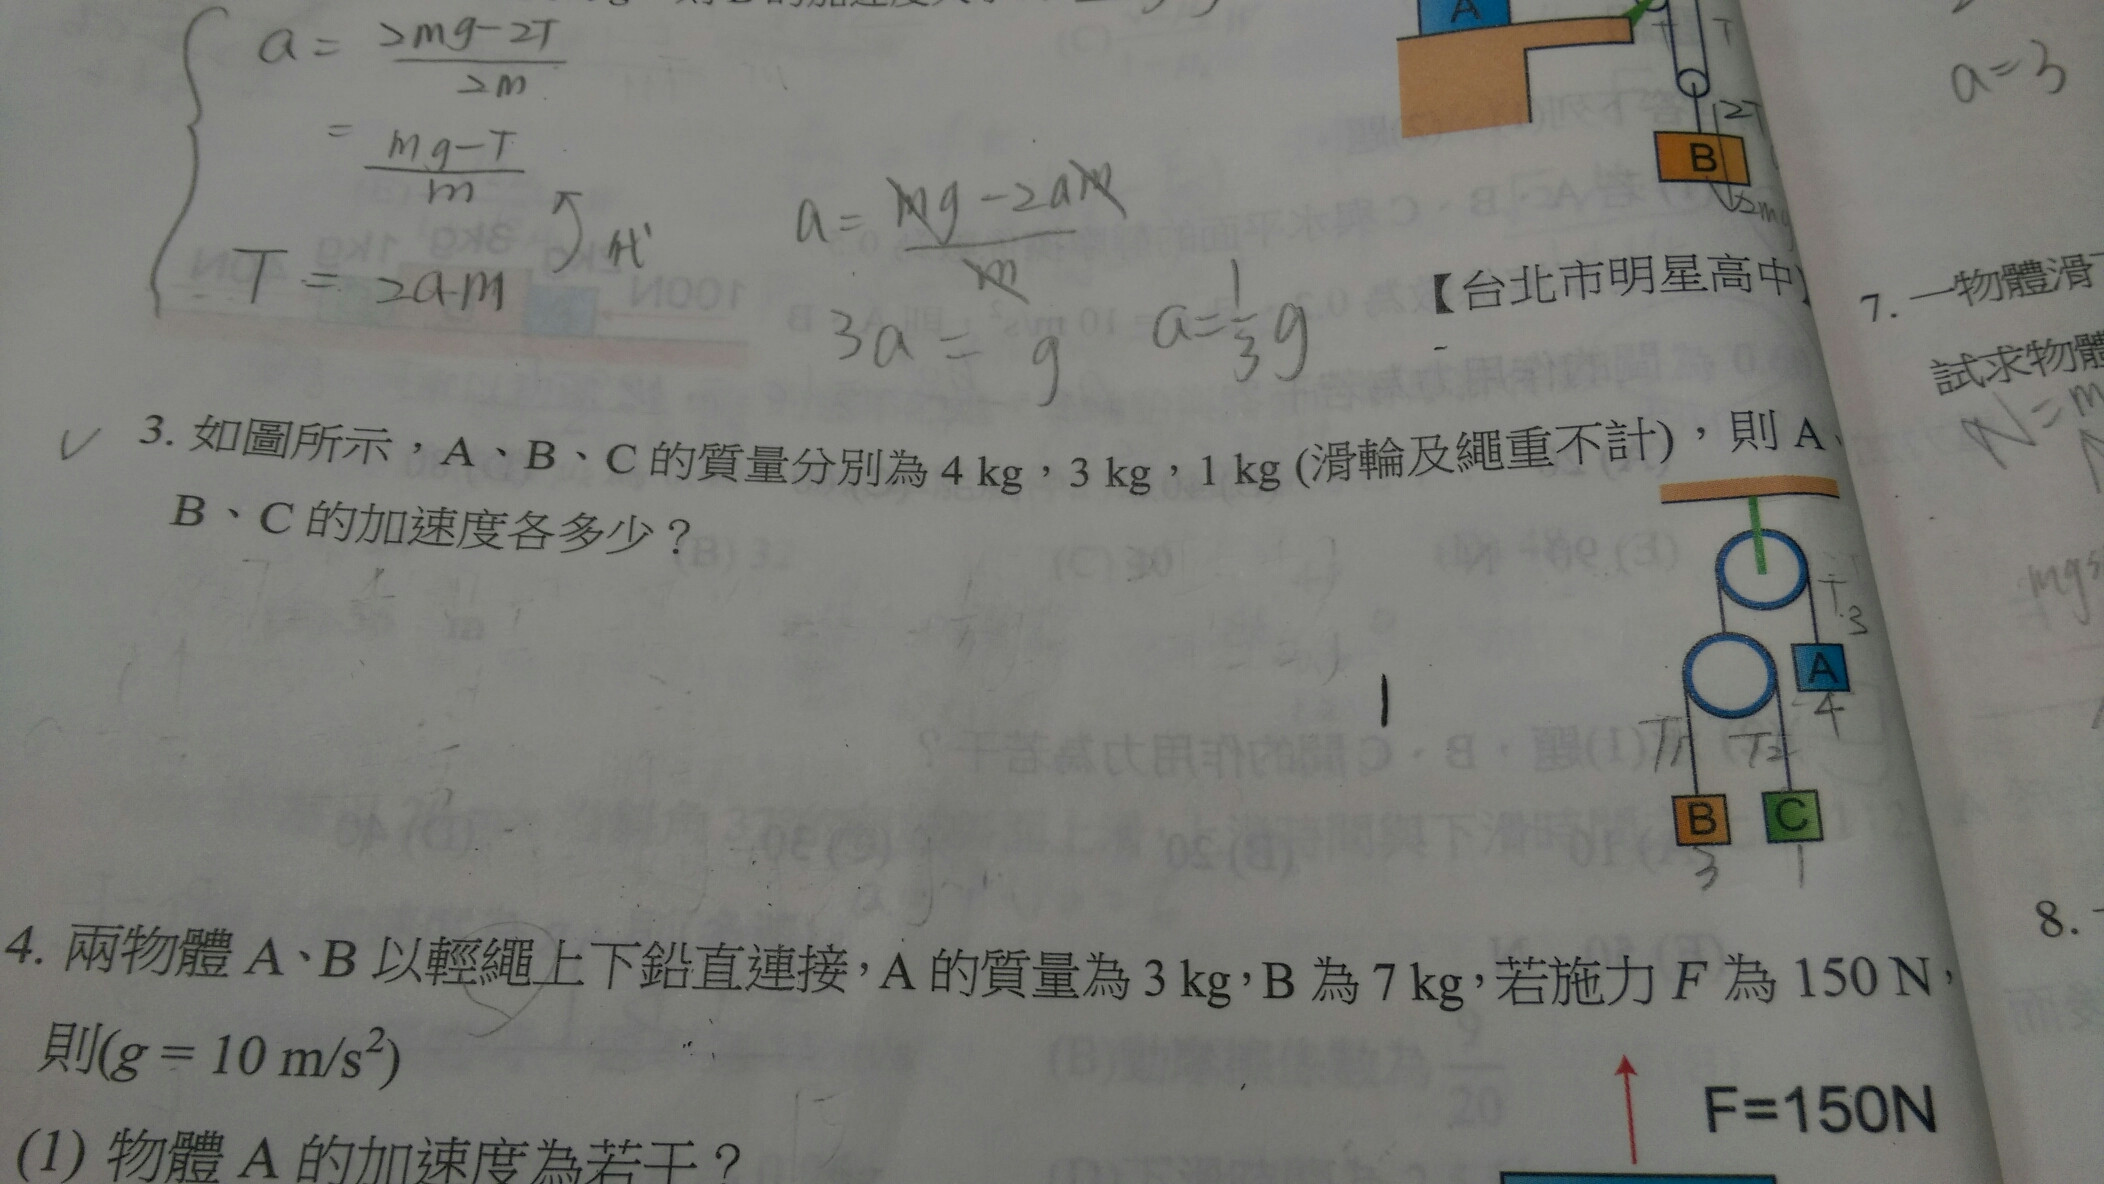 a = 2mg-2T
2m
= mg-T
m
T = 2am
代
a = mg-2am
m
3a = g
a = 1/3 g
A
T
2T
B
2mg
a=3
【台北市明星高中】
7. 一物體滑
試求物體
N=m
mgs
3. 如圖所示，A、B、C 的質量分別為 4 kg，3 kg，1 kg (滑輪及繩重不計)，則 A、
B、C 的加速度各多少？
T3
A
4
T1
T2
B
C
3
1
4. 兩物體 A、B 以輕繩上下鉛直連接，A 的質量為 3 kg，B 為 7 kg，若施力 F 為 150 N，
則(g = 10 m/s²)
8.
F=150N
(1) 物體 A 的加速度為若干？